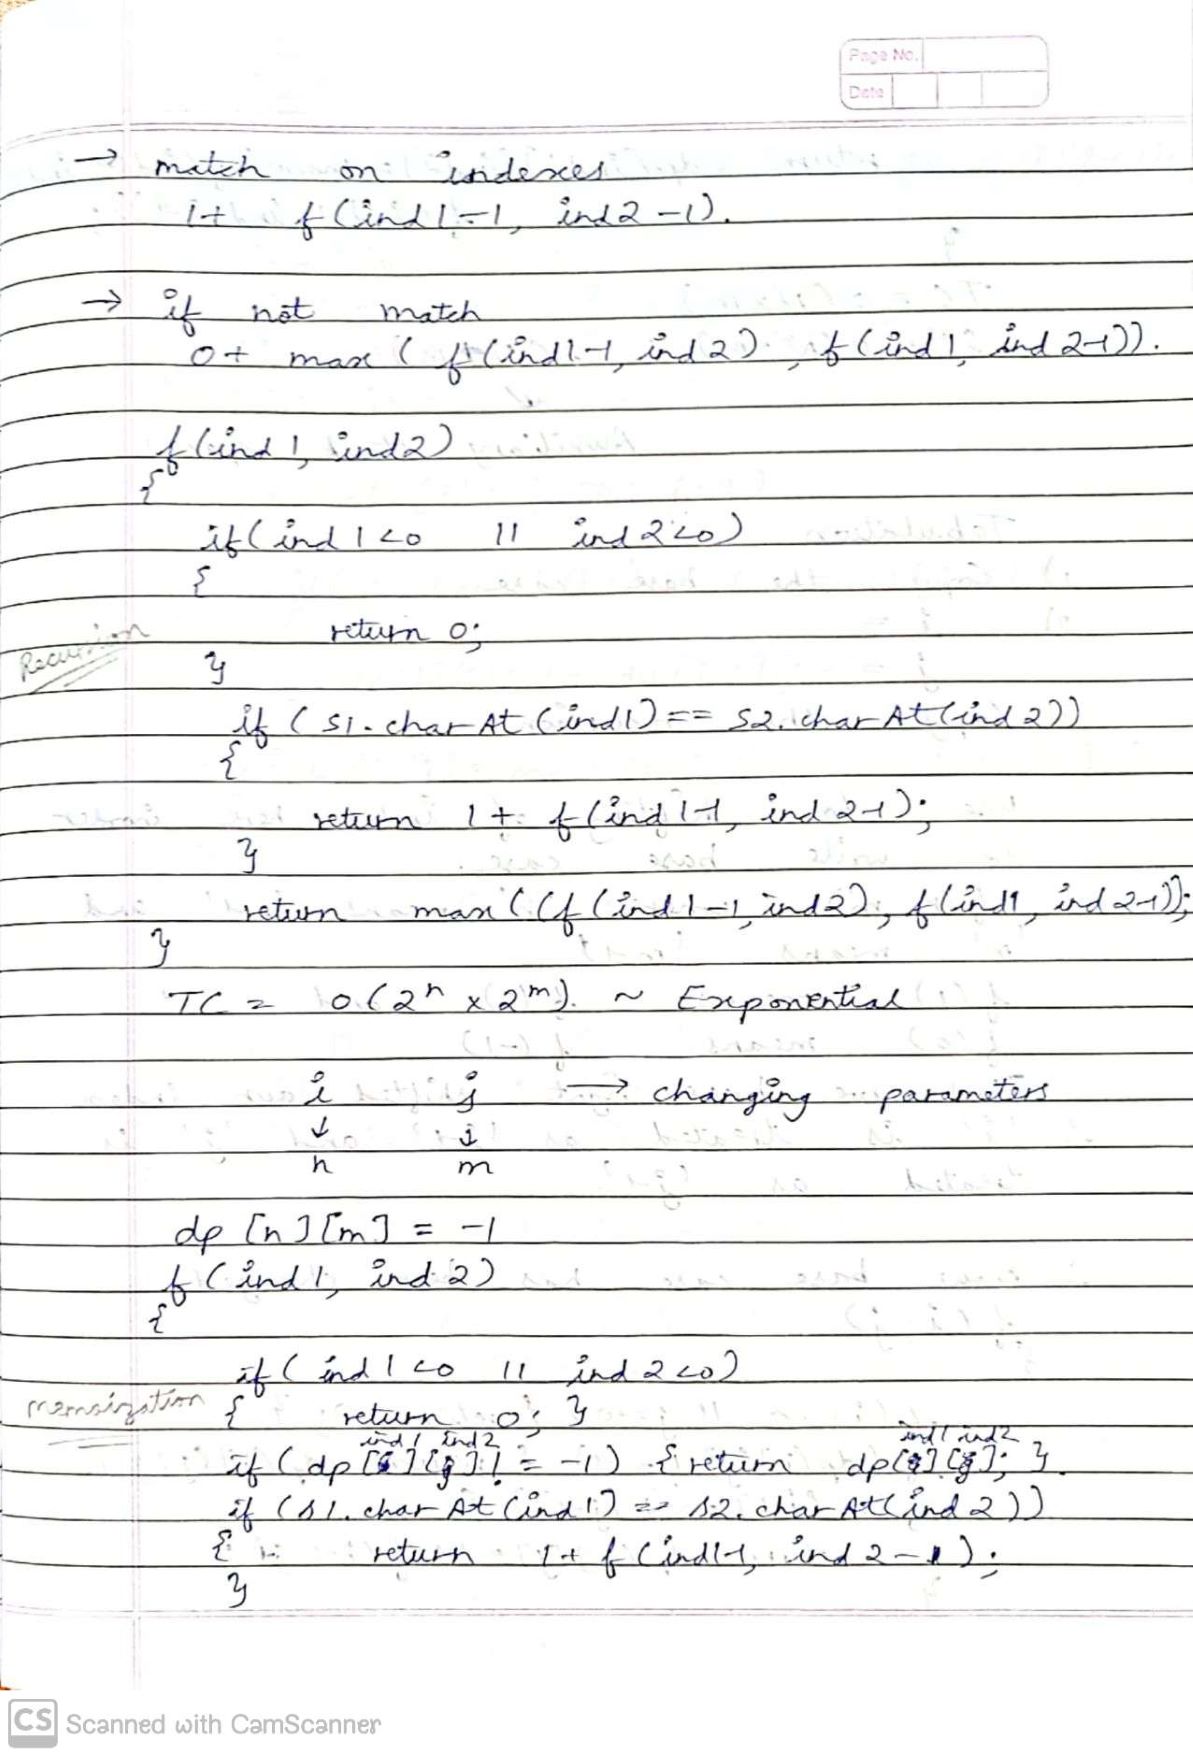 Page No.
Date
→ match on indexes
1+ f(ind1-1, ind2-1).
→ if not match
0+ max ( f(ind1-1, ind2) , f(ind1, ind2-1)).
f(ind1, ind2)
{
if(ind1<0 || ind2<0)
{
return 0;
Recursion
}
if (S1.charAt(ind1)== S2.charAt(ind2))
{
return 1+ f(ind1-1, ind2-1);
}
return max((f(ind1-1, ind2), f(ind1, ind2-1));
}
TC = O(2^n x 2^m). ~ Exponential
i j → changing parameters
↓ ↓
n m
dp [n][m] = -1
f(ind1, ind2)
{
if(ind1<0 || ind2<0)
memoization { return 0; }
ind1 ind2 ind1 ind2
if (dp[i][j]!= -1) { return dp[i][j]; }
if (s1.charAt(ind1) == s2.charAt(ind2))
{ return 1+ f(ind1-1, ind2-1);
}
CS Scanned with CamScanner